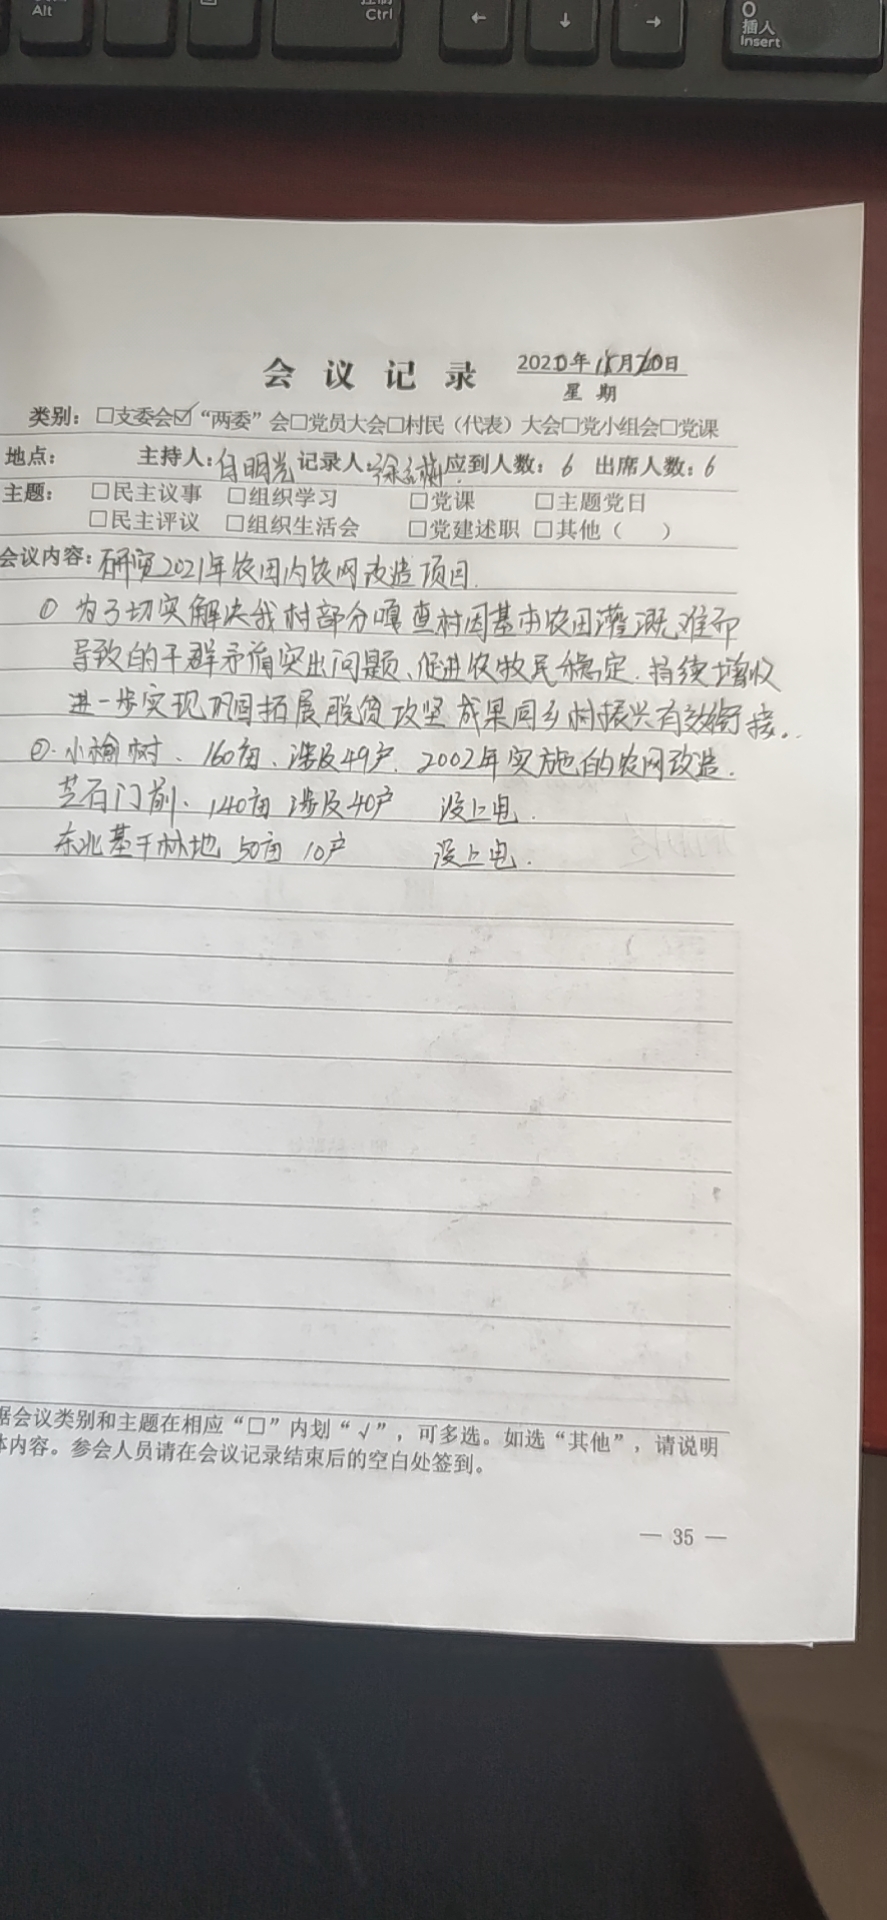 Alt
Ctrl
←
↓
→
0
插入
Insert
会议记录
2020年 月20日
星期
类别：□支委会☑“两委”会□党员大会□村民（代表）大会□党小组会□党课
地点： 主持人：白明光 记录人：徐 应到人数：6 出席人数：6
主题： □民主议事 □组织学习 □党课 □主题党日
□民主评议 □组织生活会 □党建述职 □其他（ ）
会议内容：研究2021年农田内农网改造项目.
① 为了切实解决我村部分嘎查村因基本农田灌溉难而
导致的干群矛盾突出问题、促进农牧民稳定.持续增收
进一步实现巩固拓展脱贫攻坚成果同乡村振兴有效衔接。
②.小榆树、160亩、涉及49户.2002年实施的农网改造.
芝石门前、140亩 涉及40户 没上电.
东北基干林地 50亩 10户 没上电.
据会议类别和主题在相应“□”内划“√”，可多选。如选“其他”，请说明
体内容。参会人员请在会议记录结束后的空白处签到。
— 35 —